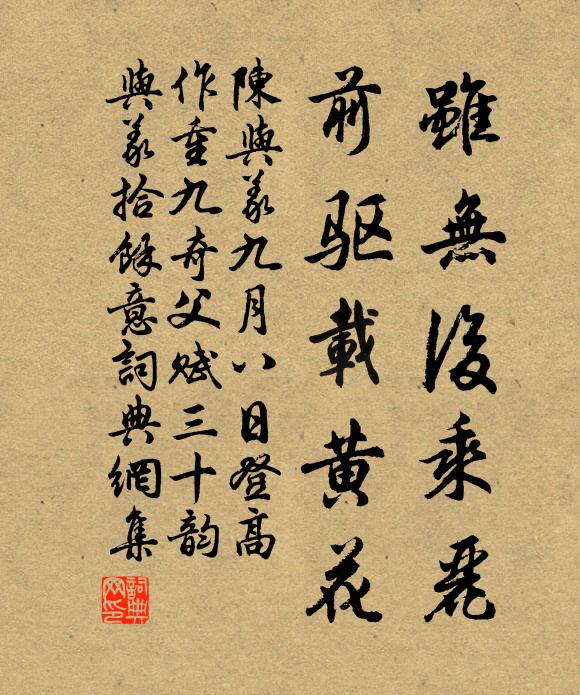 雖無後乘麗
前驱載黄花
陳與義九月八日登高
作重九奇父賦三十韵
與義拾餘意詞典網集
詞典
网印